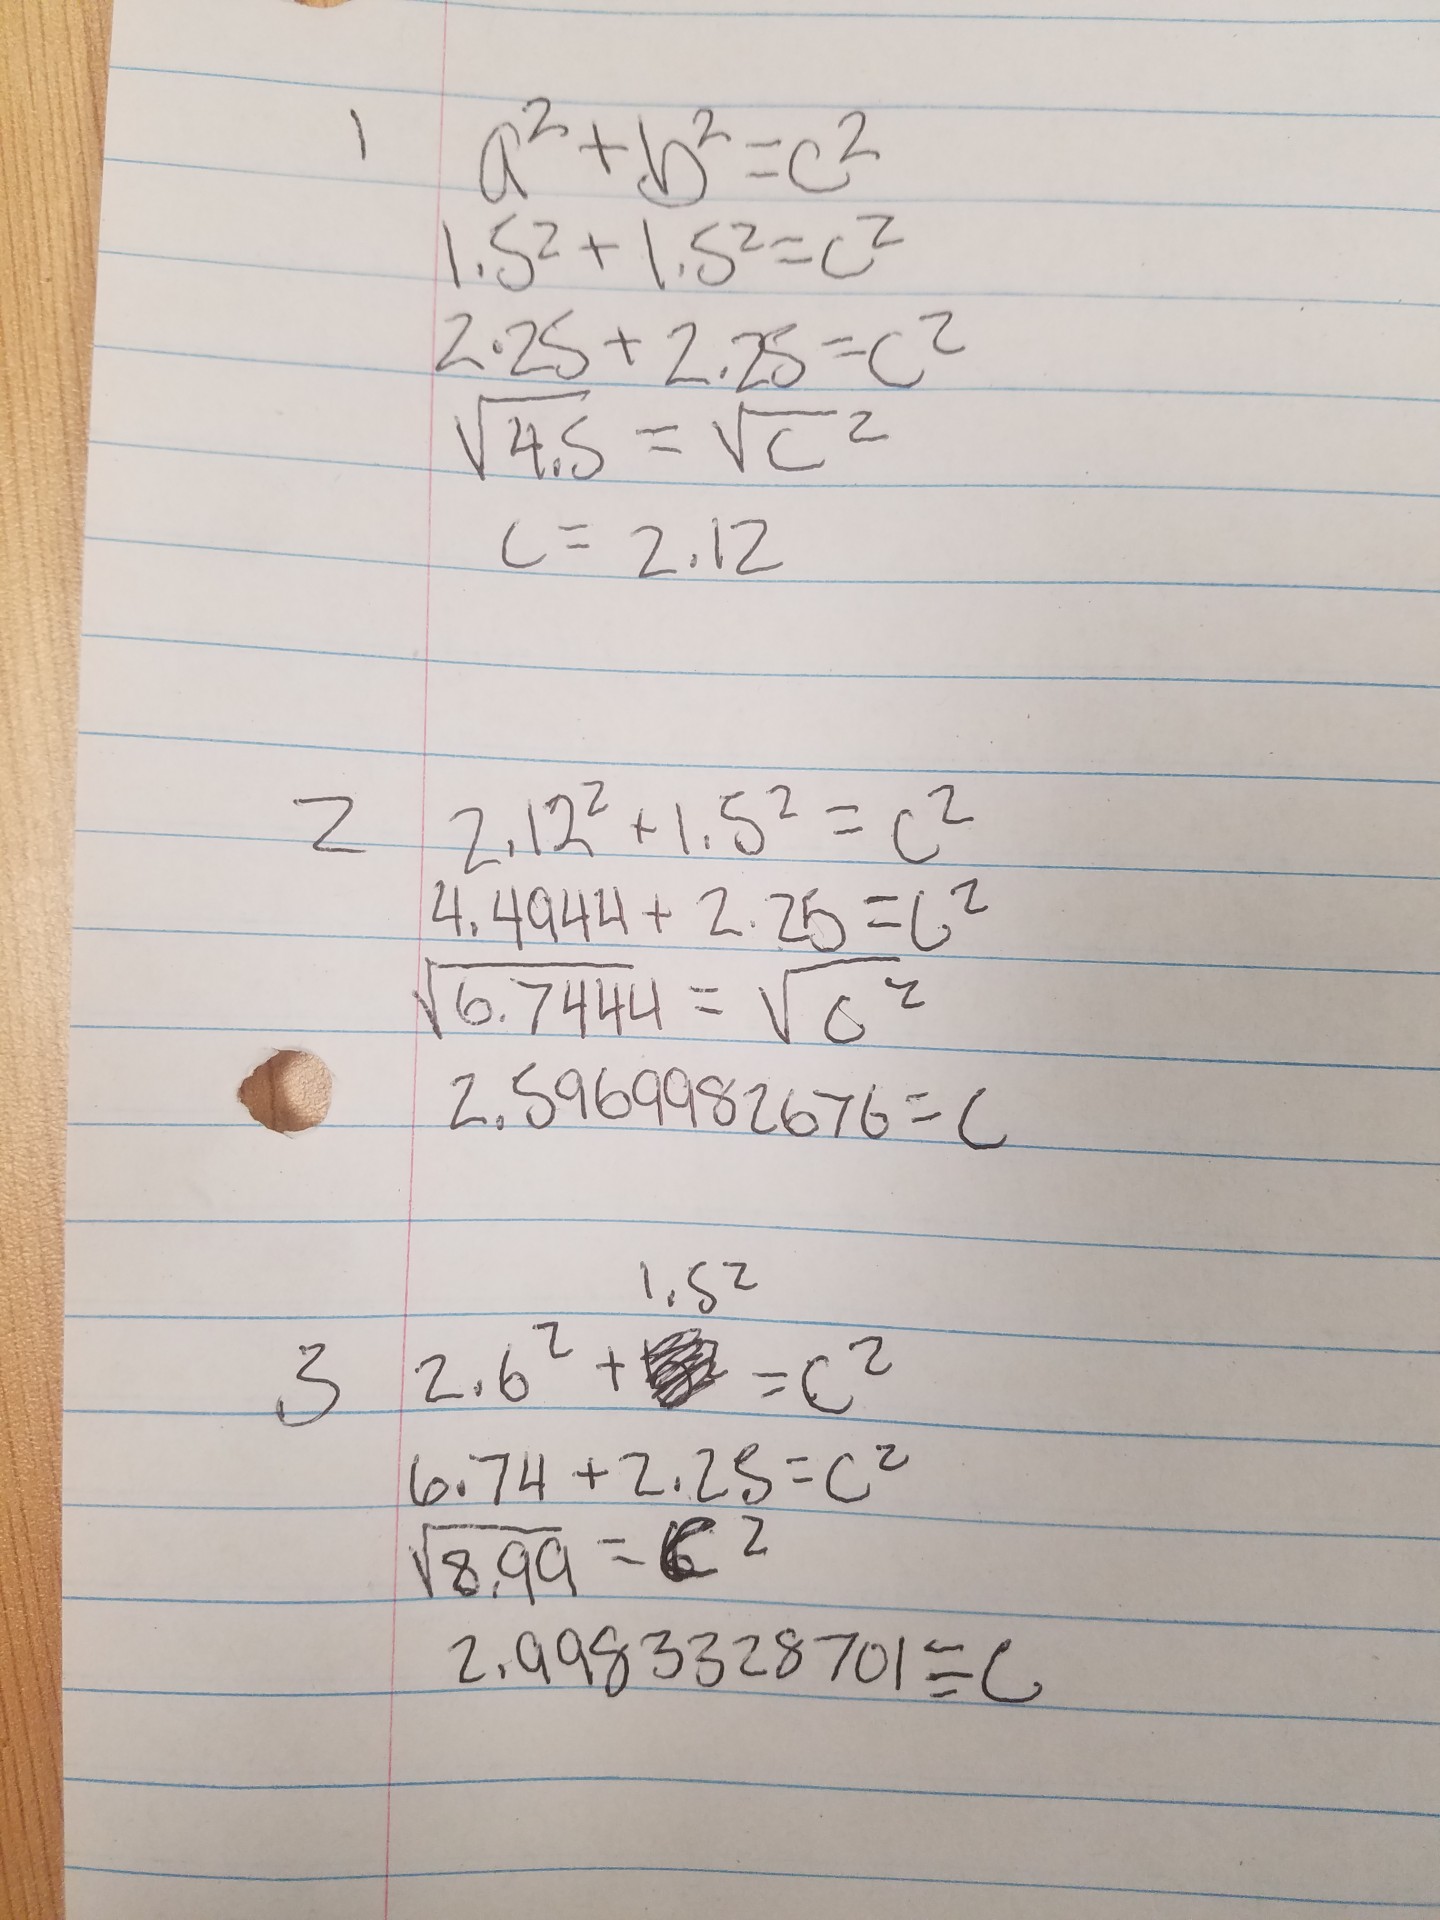 1 a²+b²=c²
1.5²+1.5²=c²
2.25+2.25=c²
√4.5=√c²
c=2.12
2 2.12²+1.5²=c²
4.4944+2.25=c²
√6.7444=√c²
2.5969982676=c
1.5²
3 2.6²+ =c²
6.74+2.25=c²
√8.99=c²
2.9983328701=c